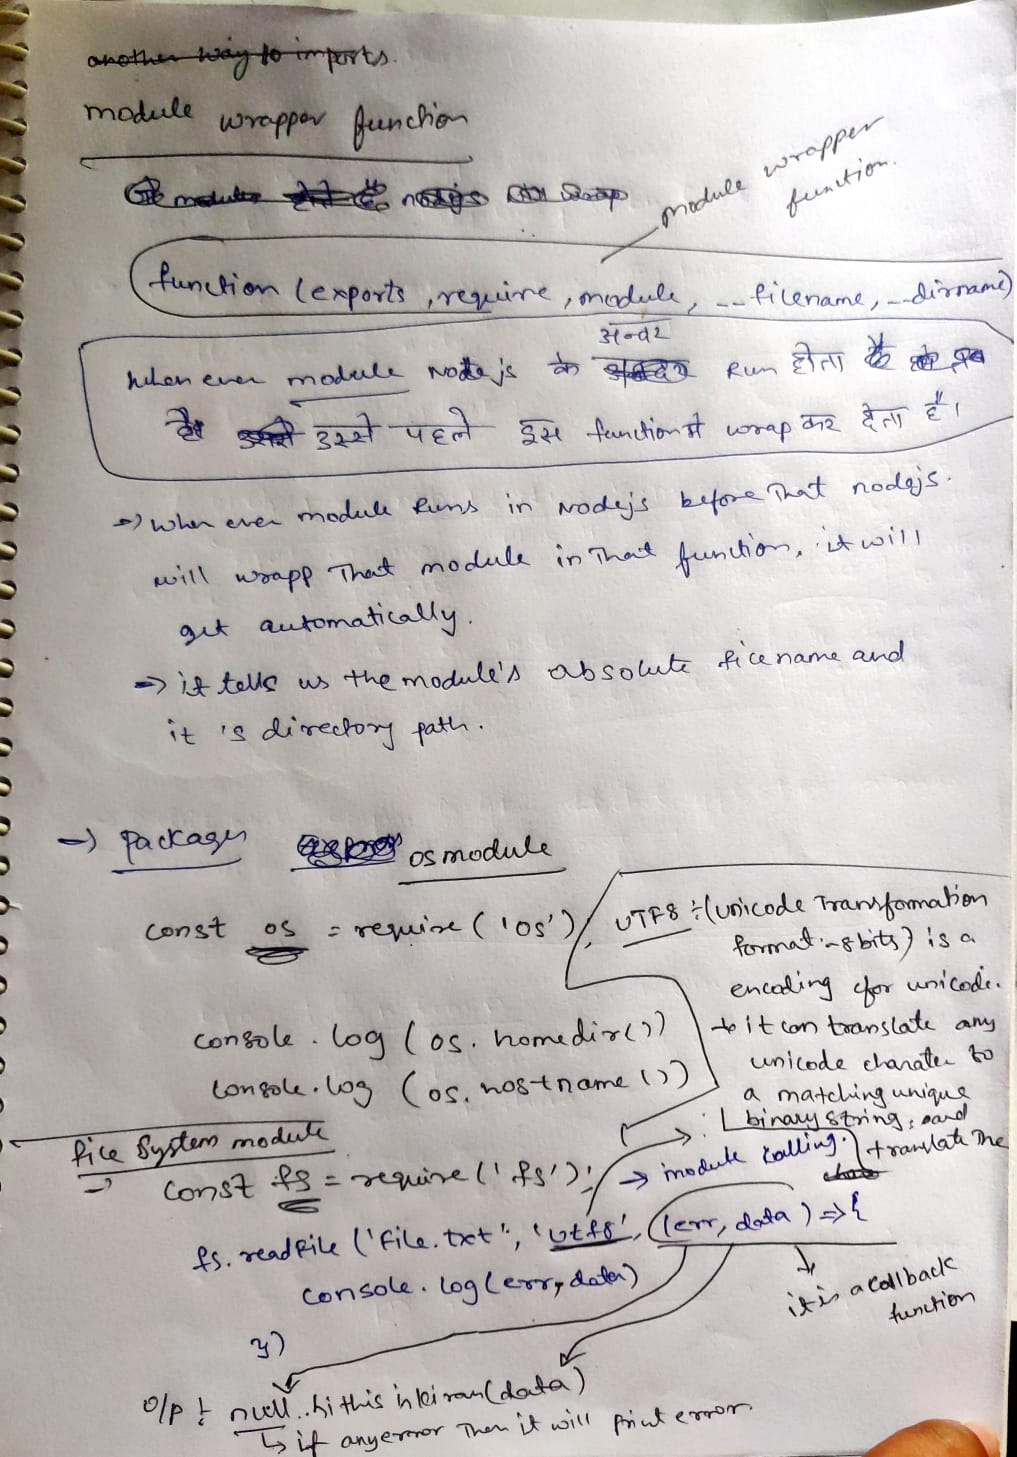 another way to imports.
module wrapper function
module wrapper
function.
function (exports, require, module, __filename, __dirname)
अन्दर
when ever module Node js के Run होता है
उससे पहले इस function से wrap कर देता है।
=> when ever module Runs in Nodejs before That nodejs.
will wrapp That module in That function, it will
get automatically.
=> it tells us the module's absolute filename and
it 's directory path.
-> packages os module
const os = require ('os'),
UTF8 :- (unicode Transformation
format - 8 bits) is a
encoding for unicode.
console . log ( os. homedir())
-> it can translate any
unicode charater to
console. log (os. hostname ())
a matching unique
binary string, and
translate The
file System module
-> const fs = require ('fs'); -> module calling.
fs. readFile ('file.txt', 'utf8', (err, data) => {
console. log(err, data)
})
it is a callback
function
o/p : null.. hi this is kiran (data)
↳ if any error Then it will print error.